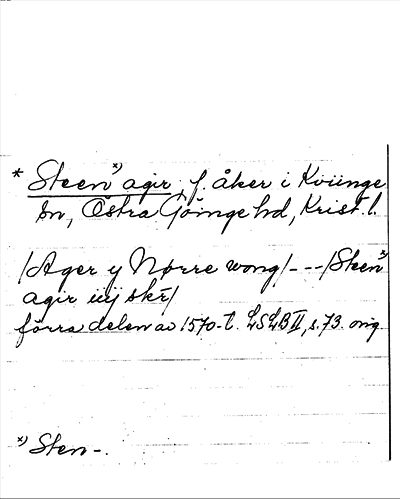 * Steen^x) agir, f. åker i Kviinge
sn, Östra Göinge hd, Krist. l.
/Ager y Nørre wong/---/Steen^x)
agir iiij skr/
förra delen av 1570-t. LSLB II, s. 73. orig.
x) Sten-.